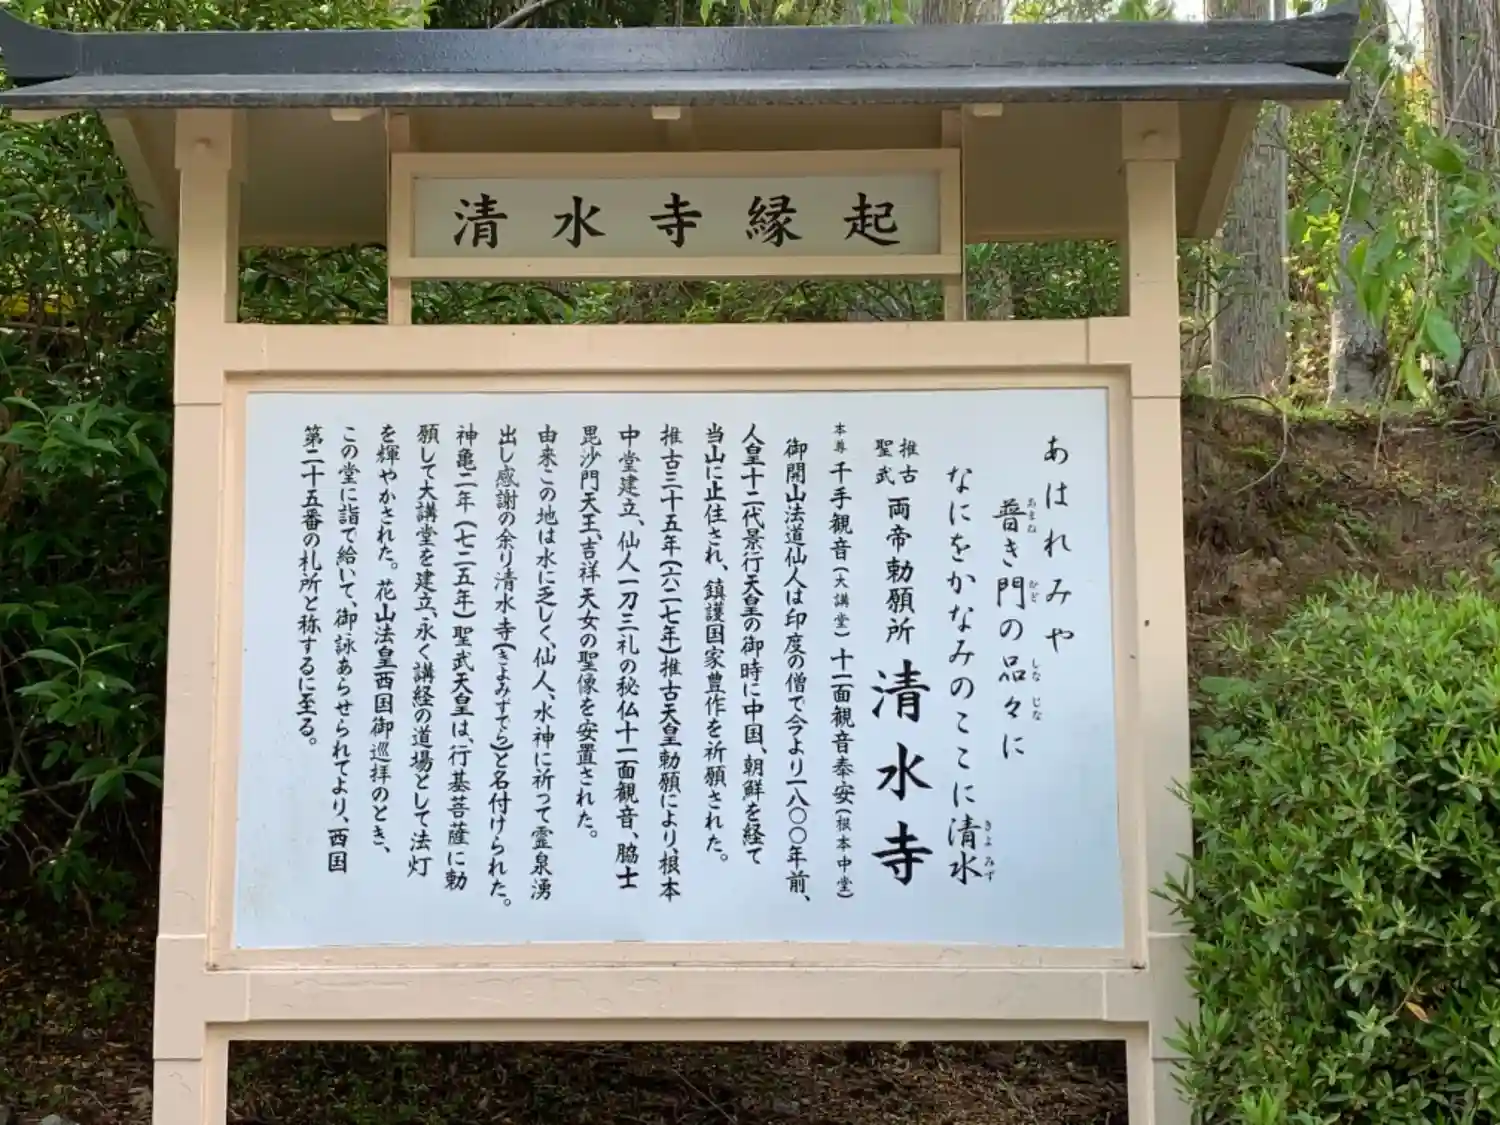 清水寺縁起
あはれみや
普き門の品々に
あまね
かど
しなじな
なにをかなみのここに清水
きよみず
推古
聖武
両帝勅願所 清水寺
本尊 千手観音(大講堂) 十一面観音泰安(根本中堂)
御開山法道仙人は印度の僧で今より一八〇〇年前、
人皇十二代景行天皇の御時に中国、朝鮮を経て
当山に止住され、鎮護国家豊作を祈願された。
推古三十五年(六二七年)推古天皇勅願により、根本
中堂建立、仙人一刀三礼の秘仏十一面観音、脇士
毘沙門天王、吉祥天女の聖像を安置された。
由来この地は水に乏しく、仙人、水神に祈って霊泉湧
出し感謝の余り清水寺(きよみずでら)と名付けられた。
神亀二年(七二五年)聖武天皇は、行基菩薩に勅
願して大講堂を建立、永く講経の道場として法灯
を輝やかされた。花山法皇西国御巡拝のとき、
この堂に詣で給いて、御詠あらせられてより、西国
第二十五番の札所と称するに至る。